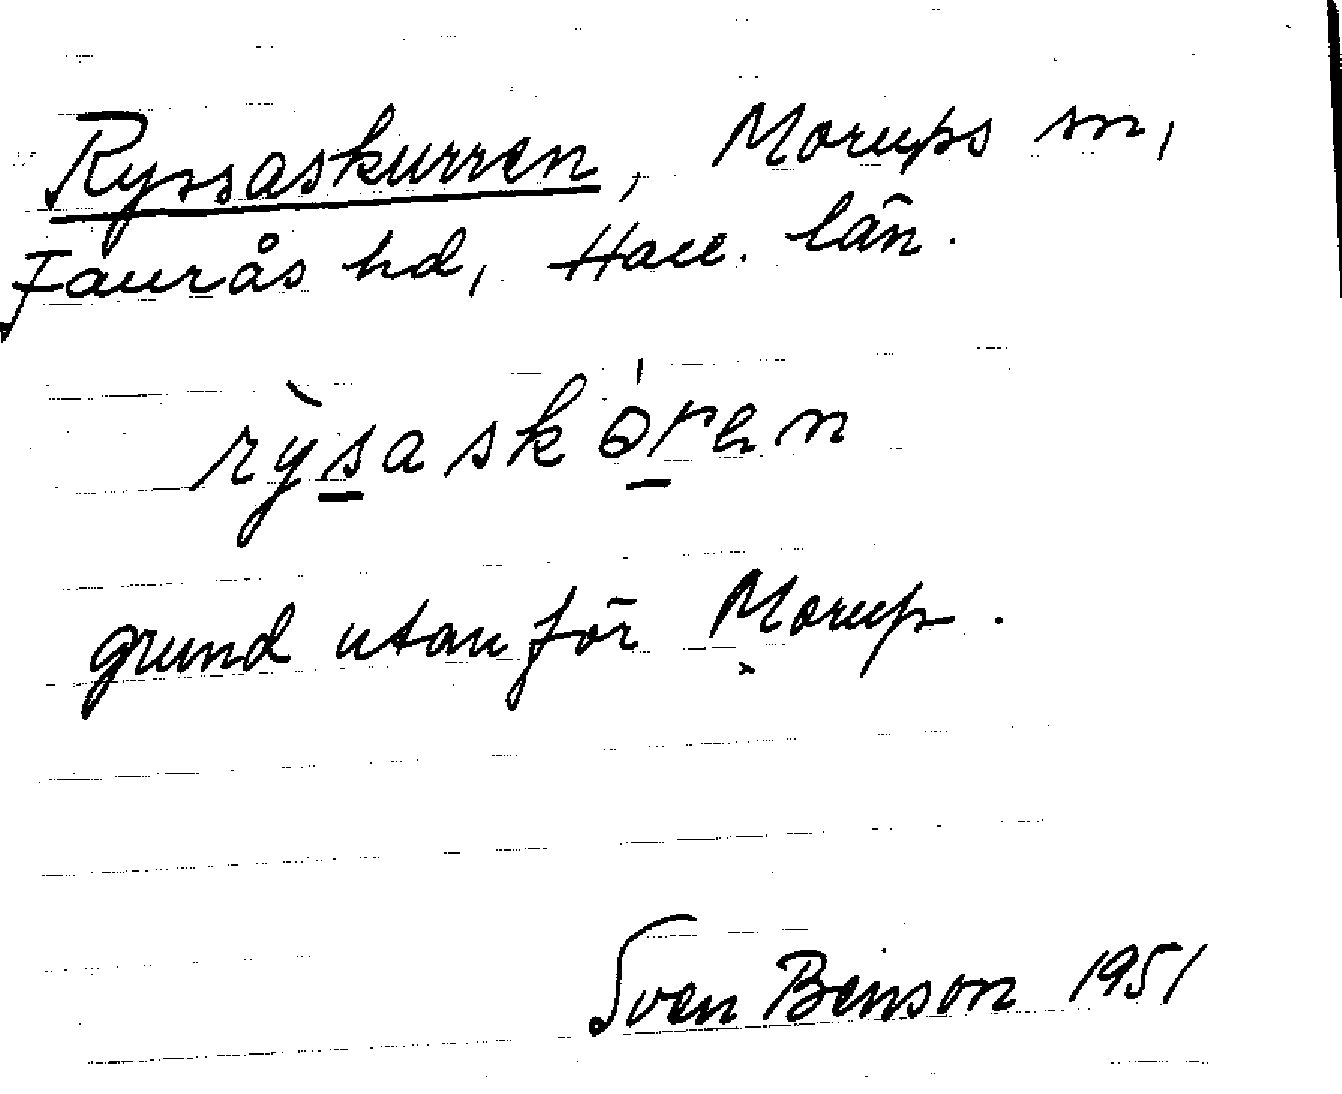 Ryssaskurren, Morups sn,
Faurås hd, Hall. län.
rỳsaskóren
grund utanför Morup.
Sven Benson 1951